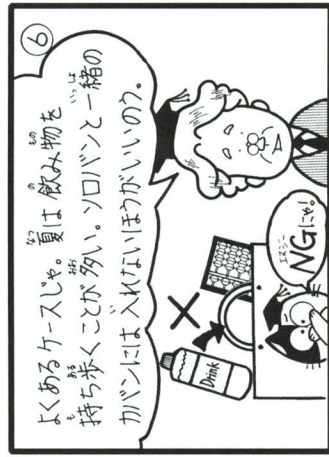 ⑥
よくあるケースじゃ。夏は飲み物を
持ち歩くことが多い。ソロバンと一緒の
カバンには入れないほうがいいのう。
NGにゃ!
Drink